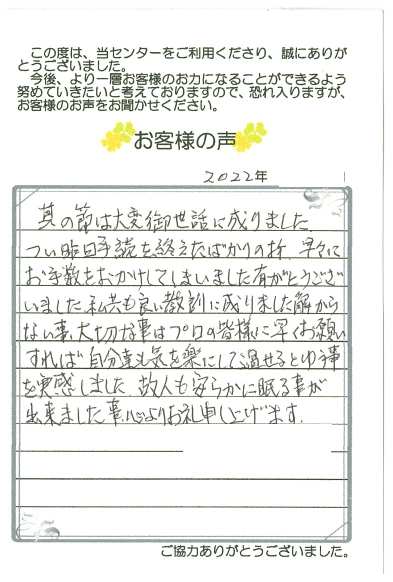 この度は、当センターをご利用くださり、誠にありが
とうございました。
今後、より一層お客様のお力になることができるよう
努めていきたいと考えておりますので、恐れ入りますが、
お客様のお声をお聞かせください。
お客様の声
2022年
其の節は大変御世話に成りました
つい昨日手続を終えたばかりの折 早々に
お手数をおかけしてしまいました有がとうござ
いました 私共も良い教訓に成りました解から
ない事、大切な事はプロの皆様に早くお願い
すれば自分達も気を楽にして過せるとゆう事
を実感しました、故人も安らかに眠る事が
出来ました事心よりお礼申し上げます.
ご協力ありがとうございました。